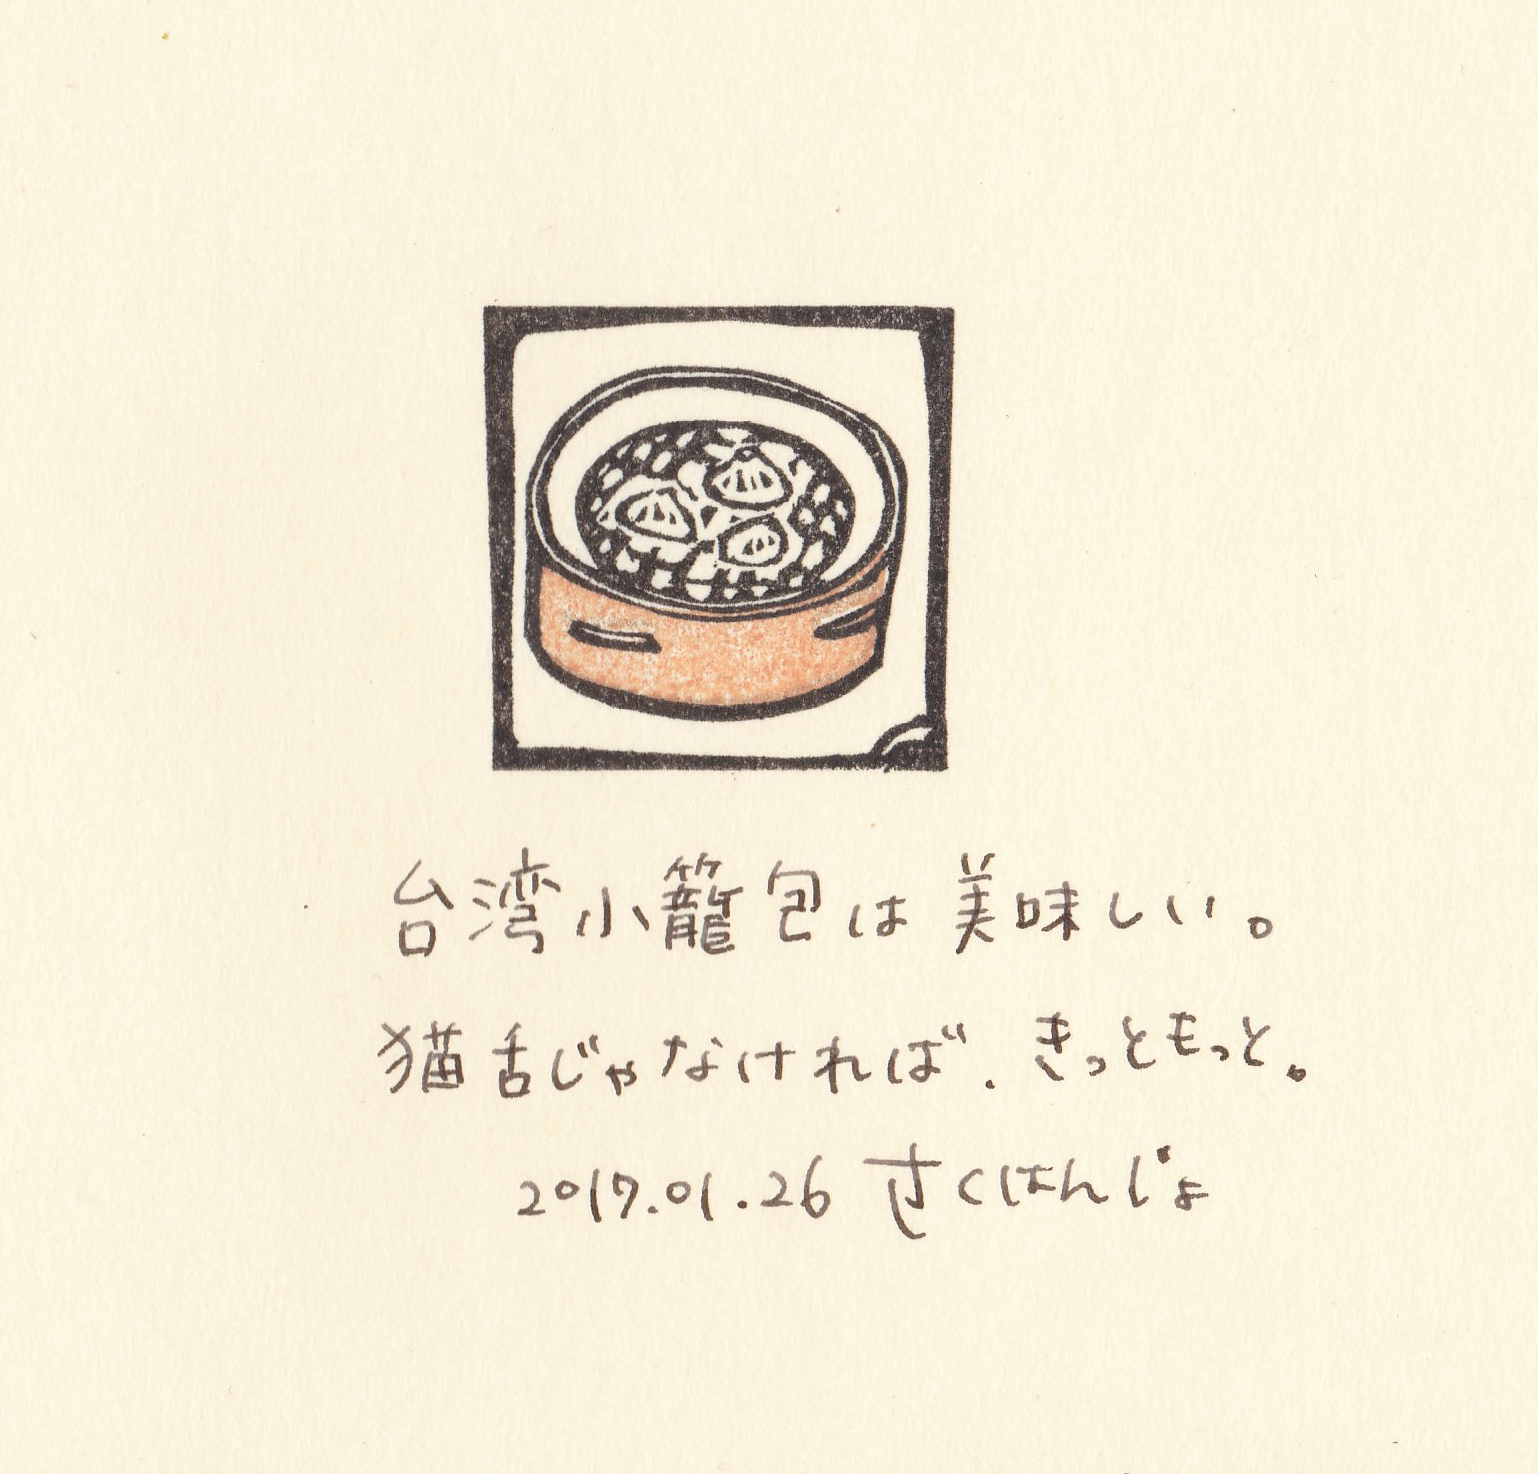 台湾小籠包は美味しい。
猫舌じゃなければ、きっともっと。
2017.01.26 さくはんじょ